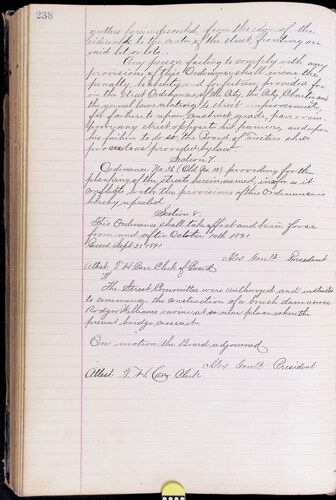 238
gutters forementioned, from the edge of the
sidewalk to the center of the street fronting on
said lot or lots.
Any person failing to comply with any
provisions of this Ordinance shall incur the
penalty, liability and forfeiture provided for
in the Street Ordinances of the City, the City
the general laws relating to street improvements,
for failure to repair, construct, grade, pave or im-
prove any street opposite his premises, and upon
his failure to do so, the Board of Trustees shall
proceed as provided by law.
Section 7.
Ordinance No. 36 (Old No. 18) providing for the
planking of the streets herein named, insofar as it
conflicts with the provisions of this Ordinance is
hereby repealed.
Section 8.
This Ordinance shall take effect and be in force
from and after October 10th 1891.
Passed Sept. 21st 1891
Alex Gault President
Attest T. H. Carr Clerk of Board
The Street Committee were authorized and instructed
to commence the construction of a brush dam across
Rodger Williams ravine at or near place where the
present bridge crosses it.
On motion the Board adjourned
Alex Gault President
Attest. T. H. Carr Clerk